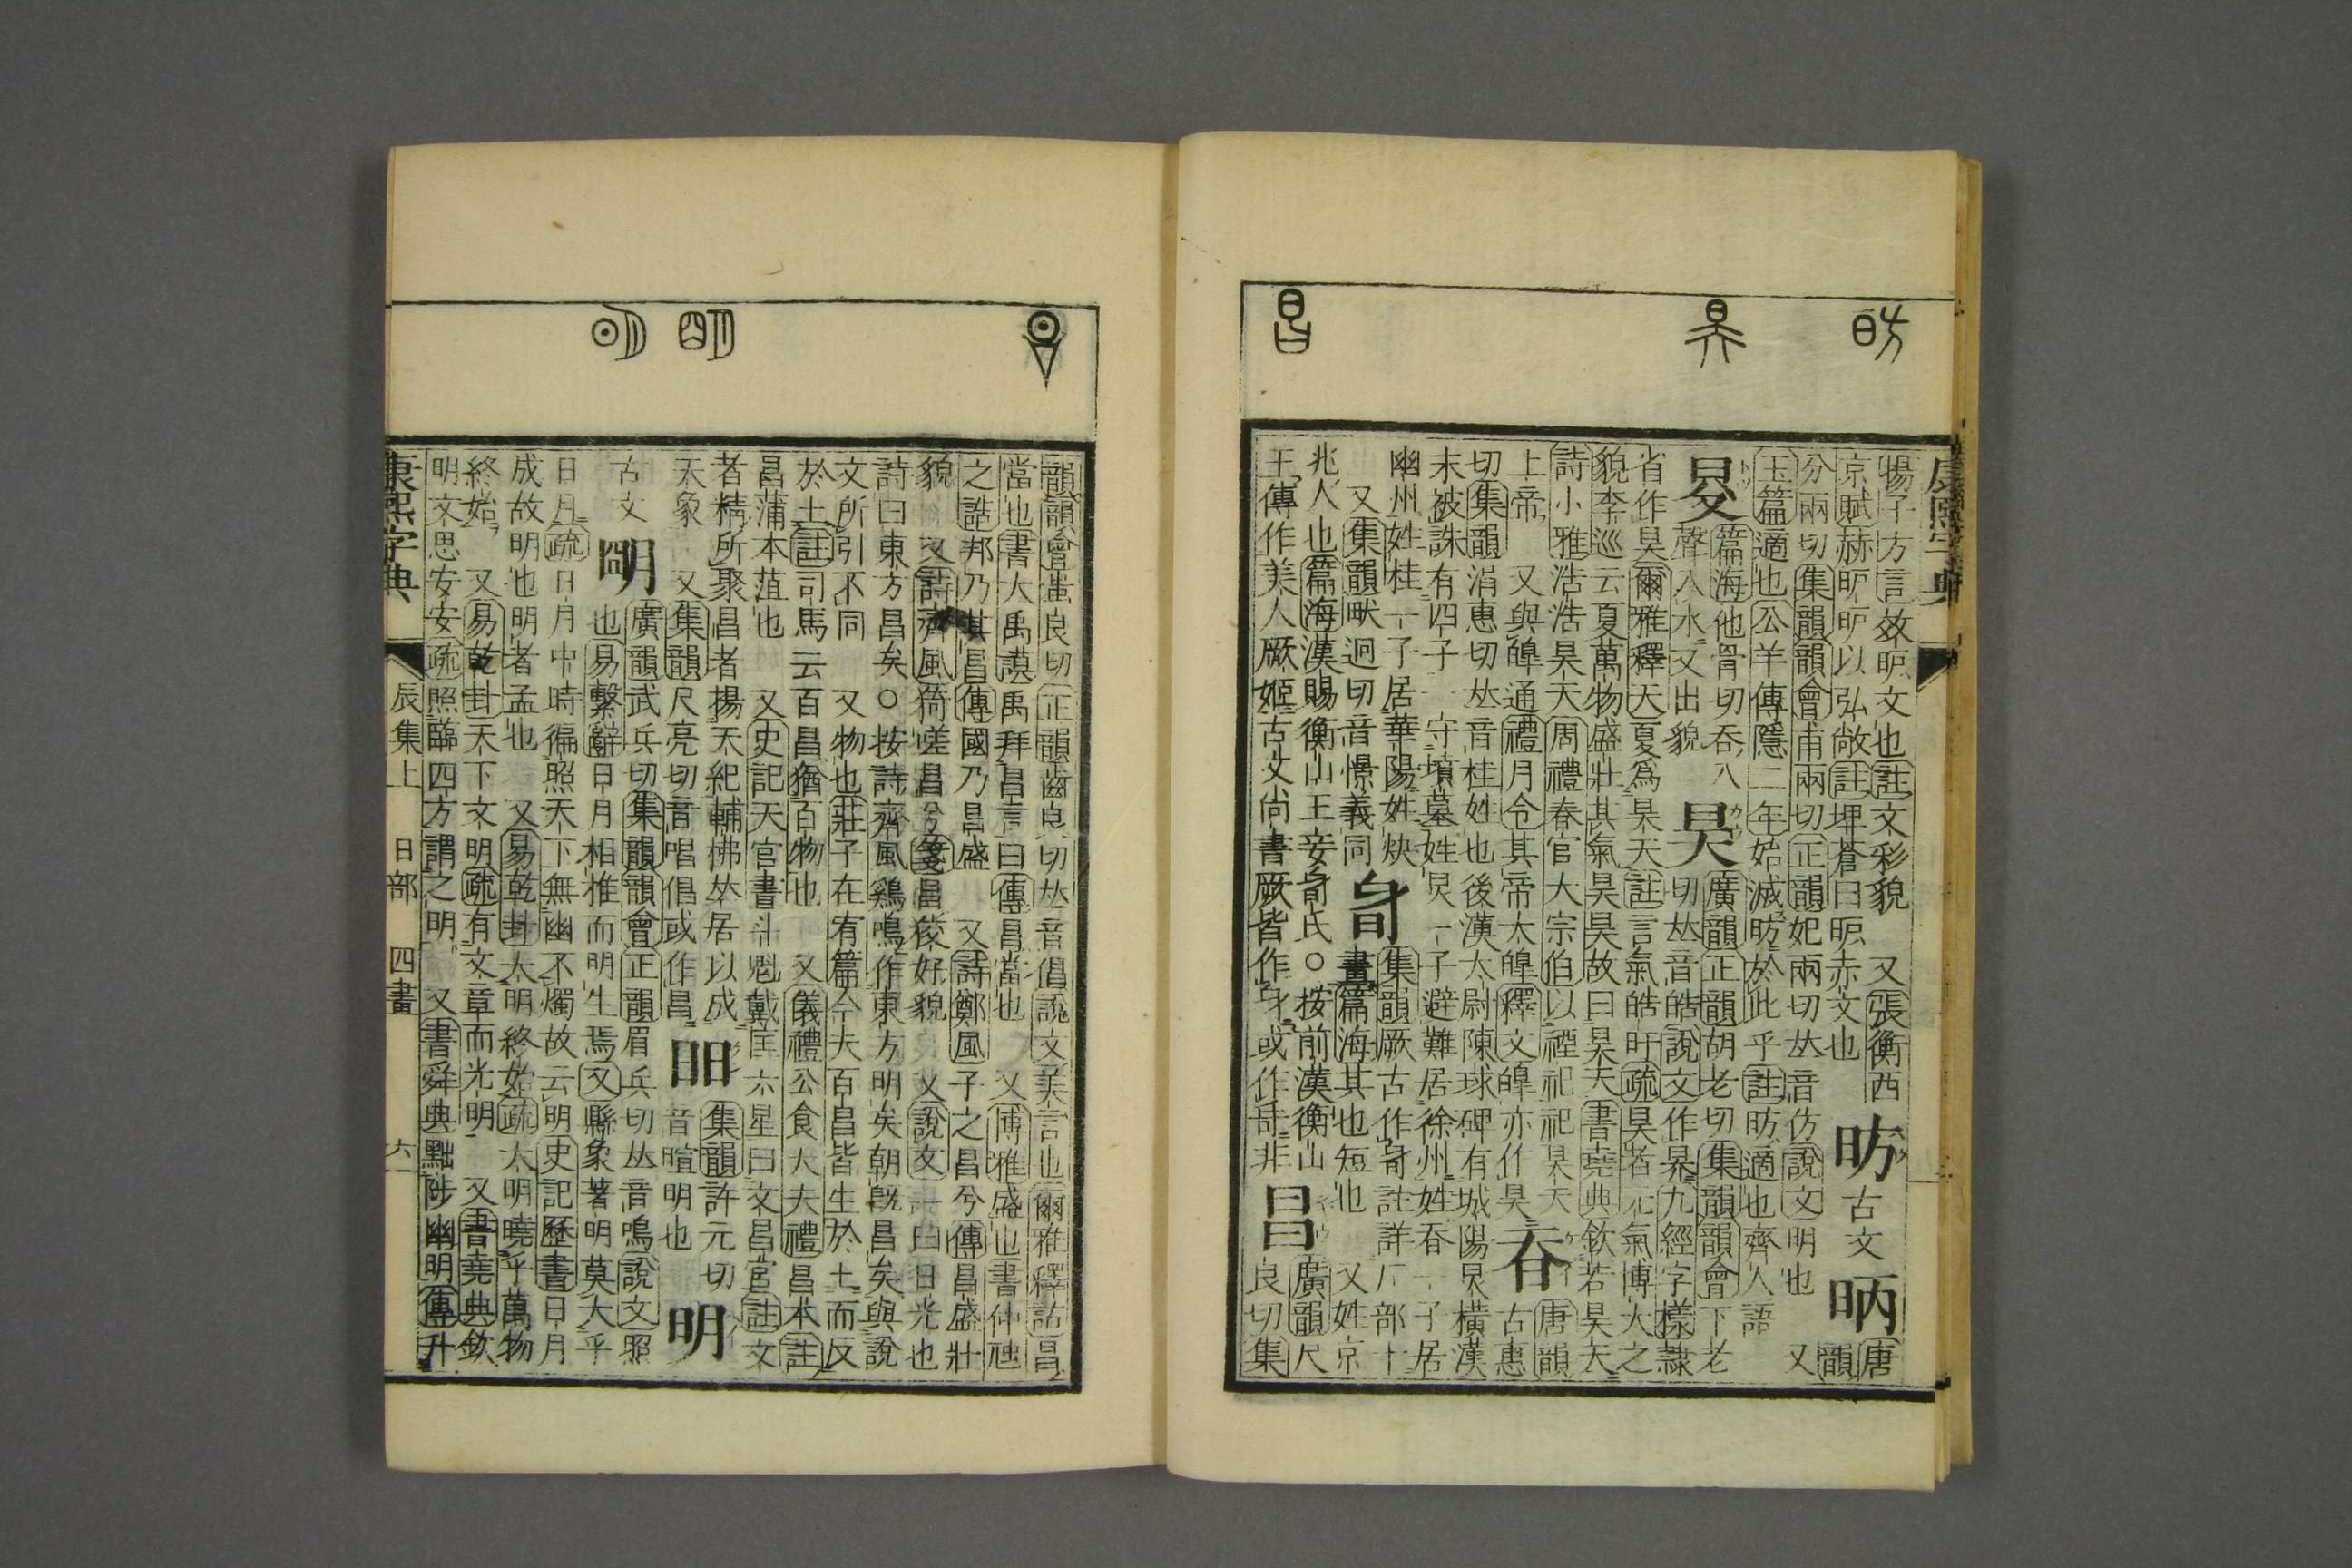 康熙字典
揚子方言效昈文也註文彩貌 又張衡西
京賦赫昈昈以弘敞註埤蒼曰昈赤文也 昉古文昞唐韻
分兩切集韻韻會甫兩切正韻妃兩切𠀤音仿說文明也 又
玉篇適也公羊傳隱二年始滅昉於此乎註昉適也齊人語
篇海他骨切吞入
聲入水又出貌 昊廣韻正韻胡老切集韻韻會下老
切𠀤音皓說文作昦九經字樣隸
省作昊爾雅釋天夏爲昊天註言氣皓旰疏昊者元氣博大之
貌李巡云夏萬物盛壯其氣昊昊故曰昊天書堯典欽若昊天
詩小雅浩浩昊天周禮春官大宗伯以禋祀祀昊天
上帝 又與皥通禮月令其帝太皥釋文皥亦作昊 唐韻古惠
切集韻涓惠切𠀤音桂姓也後漢太尉陳球碑有城陽炅橫漢
末被誅有四子一守墳墓姓炅一子避難居徐州姓吞一子居
幽州姓桂一子居華陽姓炔 集韻厥古作
又集韻畎迥切音憬義同
篇海其也短也 又姓京
兆人也篇海漢賜衡山王妾 氏○按前漢衡山
王傳作美人厥姬古文尙書厥皆作 或作 非昌廣韻尺良切集
韻韻會蚩良切正韻齒良切𠀤音倡說文美言也爾雅釋詁昌
當也書大禹謨禹拜昌言曰傳昌當也 又博雅盛也書仲虺
之誥邦乃其昌傳國乃昌盛 又詩鄭風子之昌兮傳昌盛壯
貌 又詩齊風猗嗟昌兮箋昌佼好貌 又說文一曰日光也
詩曰東方昌矣○按詩齊風鷄鳴作東方明矣朝旣昌矣與說
文所引不同 又物也莊子在宥篇今夫百昌皆生於土而反
於土註司馬云百昌猶百物也 又儀禮公食大夫禮昌本註
昌蒲本菹也 又史記天官書斗魁戴匡六星曰文昌宮註文
者精所聚昌者揚天紀輔佛𠀤居以成
天象 又集韻尺亮切音唱倡或作昌 昍集韻許元切
音暄明也 明
古文朙廣韻武兵切集韻韻會正韻眉兵切𠀤音鳴說文照
也易繫辭日月相推而明生焉又縣象著明莫大乎
日月疏日月中時徧照天下無幽不燭故云明史記歷書日月
成故明也明者孟也 又易乾卦大明終始疏大明曉乎萬物
終始 又易乾卦天下文明疏有文章而光明 又書堯典欽
明文思安安疏照臨四方謂之明 又書舜典黜陟幽明傳升
康熙字典 辰集上 日部 四畫 六一